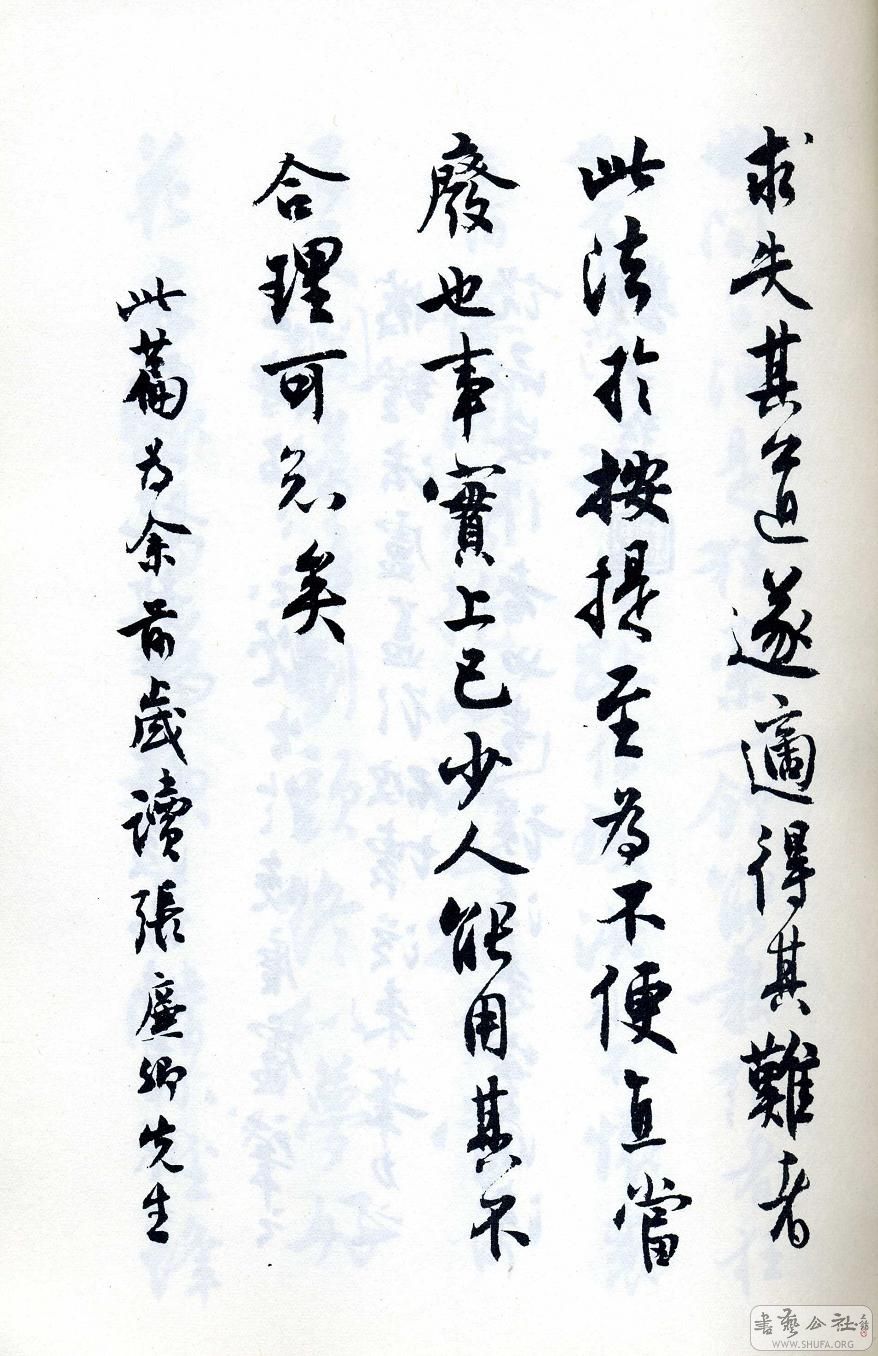 求失其道遂適得其難者
此法於按提至為不便直當
廢也事實上已少人能用其不
合理可知矣
此篇為余前歲讀張廉卿先生
書藝公社
WWW.SHUFA.ORG